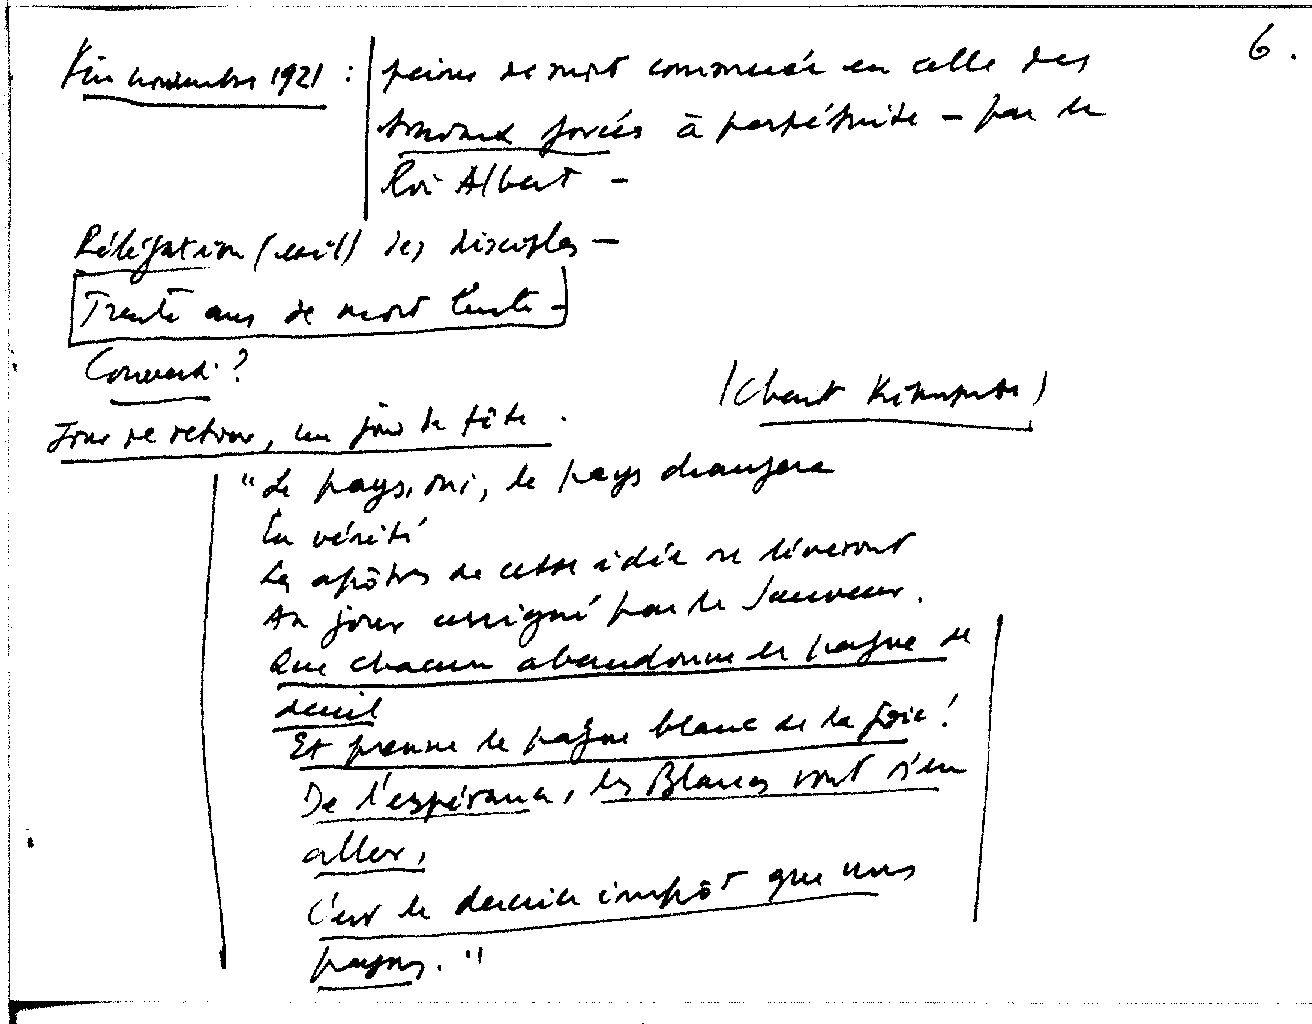 6.
Fin novembre 1921 : peine de mort commuée en celle des
travaux forcés à perpétuité – par le
Roi Albert –
Rélégation (exil) des disciples –
Trente ans de mort lente –
Converti ?
Jour de retour, un jour de fête.
(Chant Kibanguiste)
"Le pays, oui, le pays changera
En vérité
Les apôtres de cette idée se lèveront
Au jour assigné par le Sauveur.
Que chacun abandonne le pagne de
deuil
Et prenne le pagne blanc de la joie !
De l'espérance, les Blancs vont s'en
aller,
C'est le dernier impôt que nous
payons."